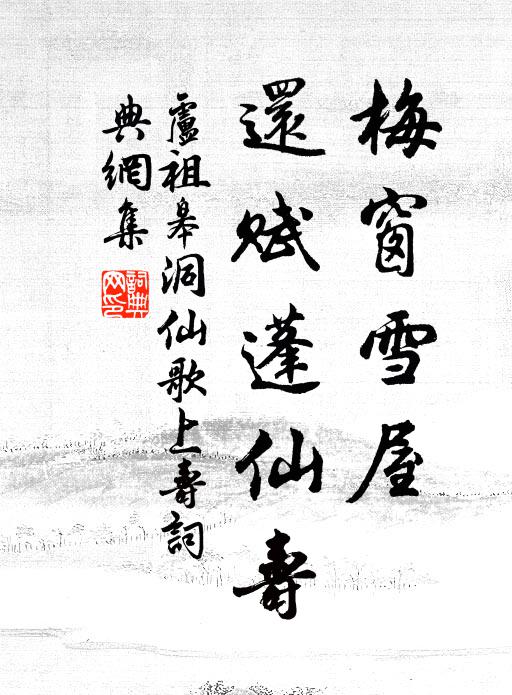 梅窗雪屋
還賦蓬仙壽
盧祖皋洞仙歌上壽詞
典網集
詞典網印